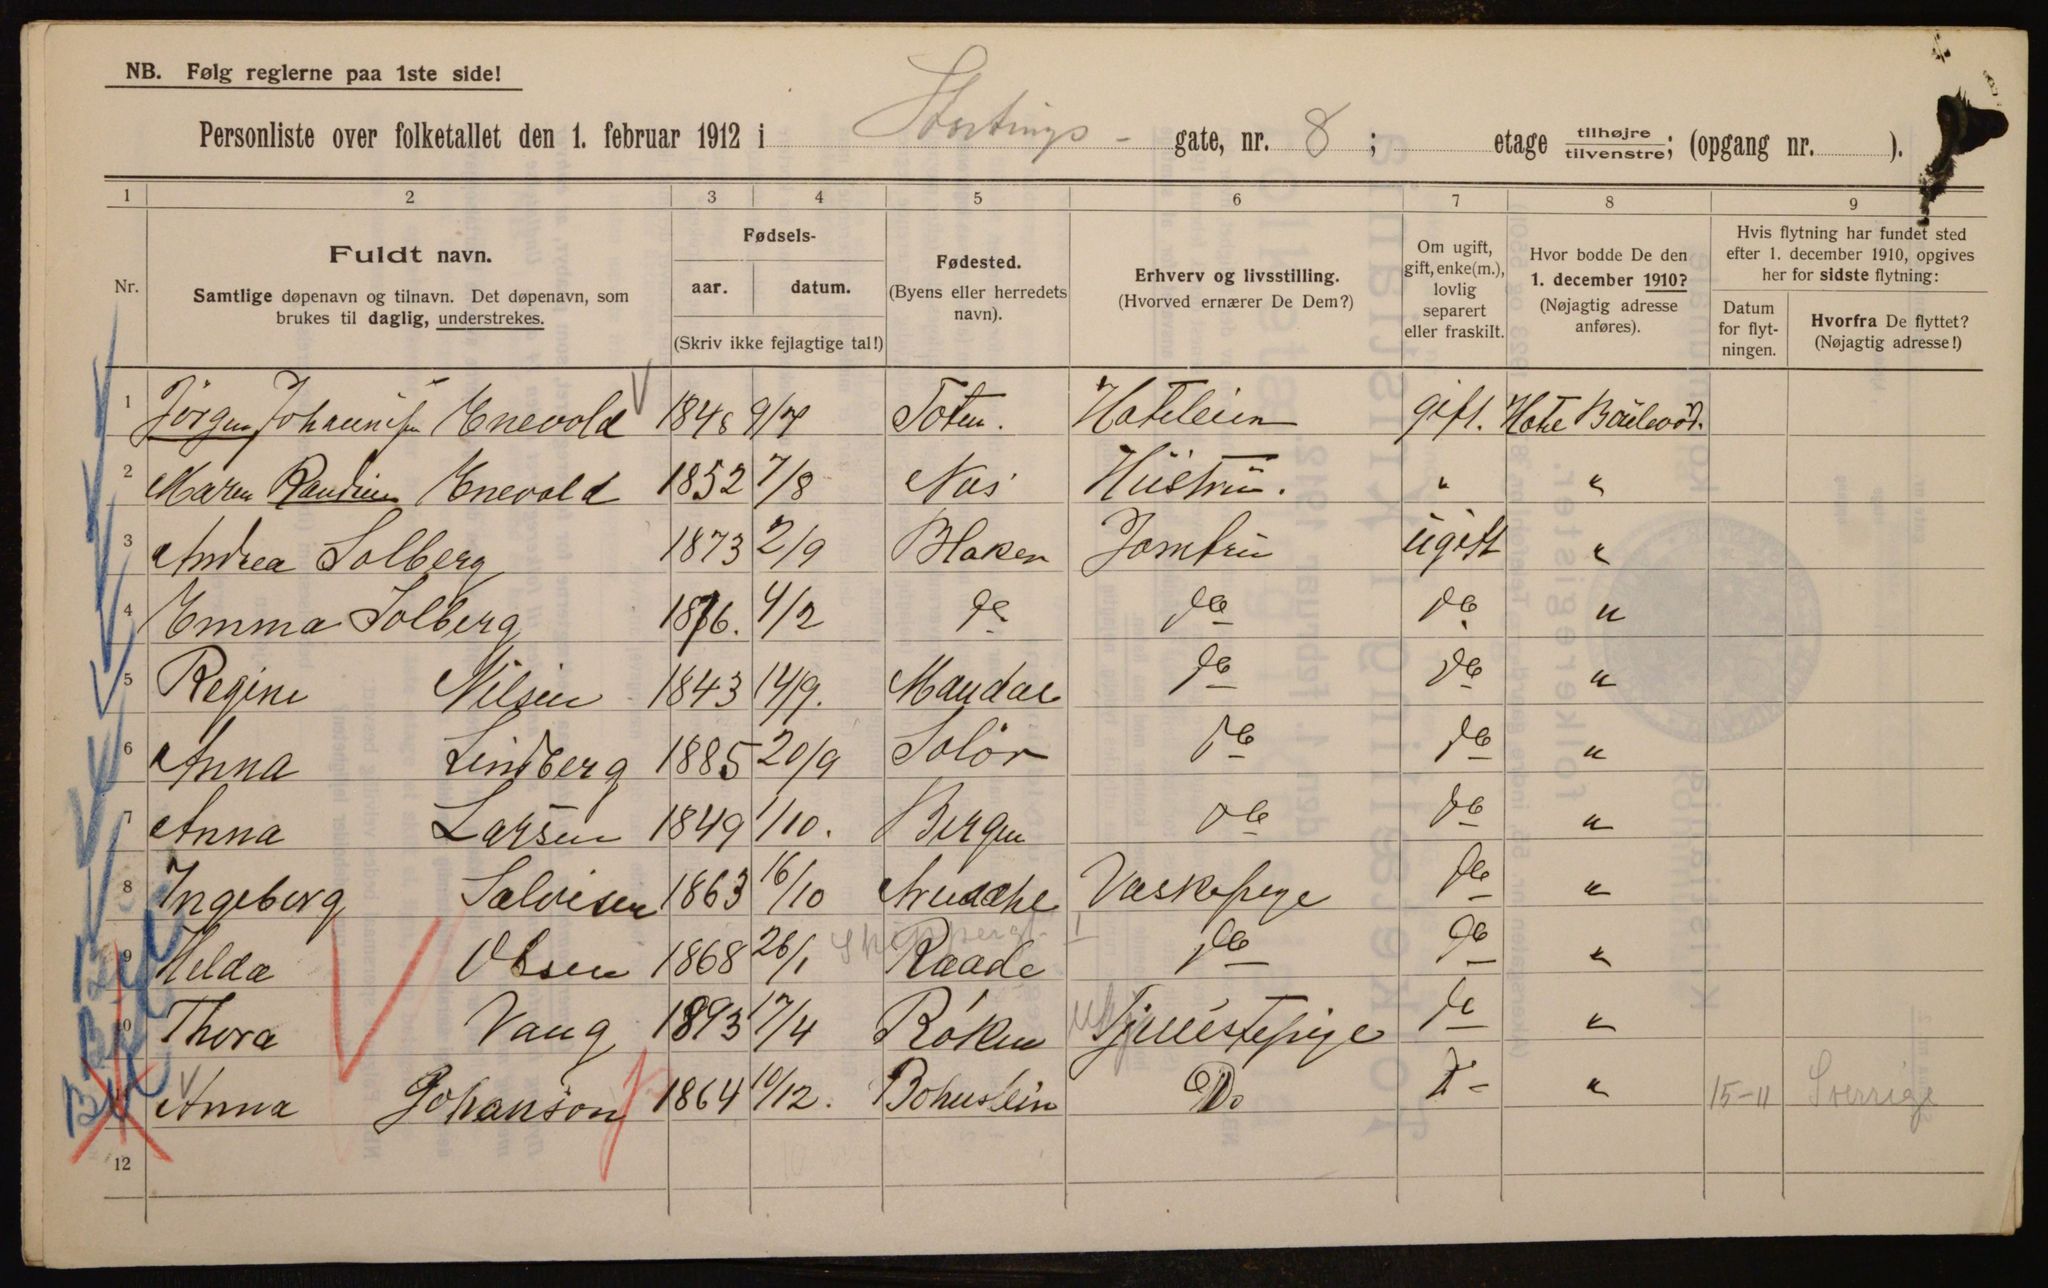 NB. Følg reglerne paa 1ste side!
Personliste over folketallet den 1. februar 1912 i Stortings - gate, nr. 8 ; etage tilhøjre/tilvenstre; (opgang nr. ).
1 2 3 4 5 6 7 8 9
Nr.
Fuldt navn.
Samtlige døpenavn og tilnavn. Det døpenavn, som
brukes til daglig, understrekes.
Fødsels-
aar. datum.
(Skriv ikke fejlagtige tal!)
Fødested.
(Byens eller herredets
navn).
Erhverv og livsstilling.
(Hvorved ernærer De Dem?)
Om ugift,
gift, enke(m.),
lovlig
separert
eller fraskilt.
Hvor bodde De den
1. december 1910?
(Nøjagtig adresse
anføres).
Hvis flytning har fundet sted
efter 1. december 1910, opgives
her for sidste flytning:
Datum
for flyt-
ningen.
Hvorfra De flyttet?
(Nøjagtig adresse!)
1 Jörgen Enevold 1848 9/7 Toten. gift.
2 Maren Enevold 1852 7/8 Nes Hüstrü. " "
3 Andrea Solberg 1873 2/9 Blaker Jomfrü ügift "
4 Emma Solberg 1876. 4/2 do do do "
5 Regine Nilsen 1843 14/9. Mandal do do "
6 Anna Lindberg 1885 20/9 Solör do do "
7 Anna Larsen 1849 1/10. Bergen do do "
8 Ingeborg 1863 16/10 Vaskepige do "
9 Olsen 1868 26/1 Raade do do "
10 Thora Vang 1893 17/4 Röken Tjenestepige do "
11 Anna Johanson 1864 10/12. Bohuslein Do D- " 15-11 Sverrige
12